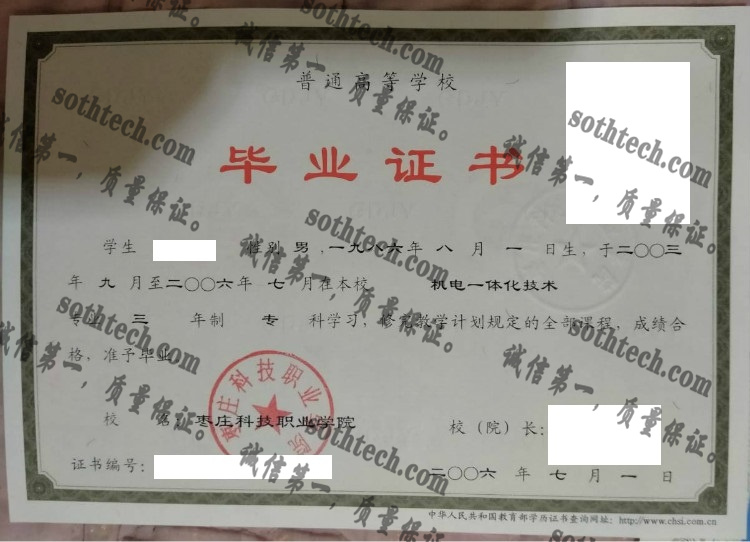 普通高等学校
毕业证书
学生 性别 男，一九八六年 八 月 一 日生，于二〇〇三
年 九 月至二〇〇六年 七 月在本校 机电一体化技术
专业 三 年制 专 科学习，修完教学计划规定的全部课程，成绩合
格，准予毕业。
校 名：枣庄科技职业学院 校（院）长：
证书编号：
二〇〇六 年 七 月 一 日
中华人民共和国教育部学历证书查询网址：http://www.chsi.com.cn
枣庄科技职业学院
sothtech.com
诚信第一，质量保证。
sothtech.com
诚信第一，质量保证。
sothtech.com
诚信第一，质量保证。
sothtech.com
诚信第一，质量保证。
sothtech.com
诚信第一，质量保证。
sothtech.com
诚信第一，质量保证。
sothtech.com
诚信第一，质量保证。
sothtech.com
诚信第一，质量保证。